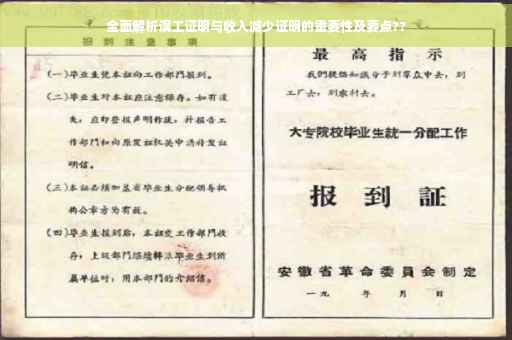 全面解析误工证明与收入减少证明的重要性及要点??
报到注意事项
(一)毕业生凭本证向工作部门报到。
(二)毕业生对本证应注意保存。如有遗
失，应即登报声明作废，并报告工
作部门和向原发证机关申请补发证
明信。
(三)本证必须加盖省毕业生分配领导机
构公章方为有效。
(四)毕业生报到后，本证交工作部门收
存；上级部门继续转派毕业生到所
属单位时，用本部门的介绍信。
最高指示
我们提倡知识分子到群众中去，到
工厂去，到农村去。
大专院校毕业生统一分配工作
报到证
安徽省革命委员会制定
一九 年 月 日